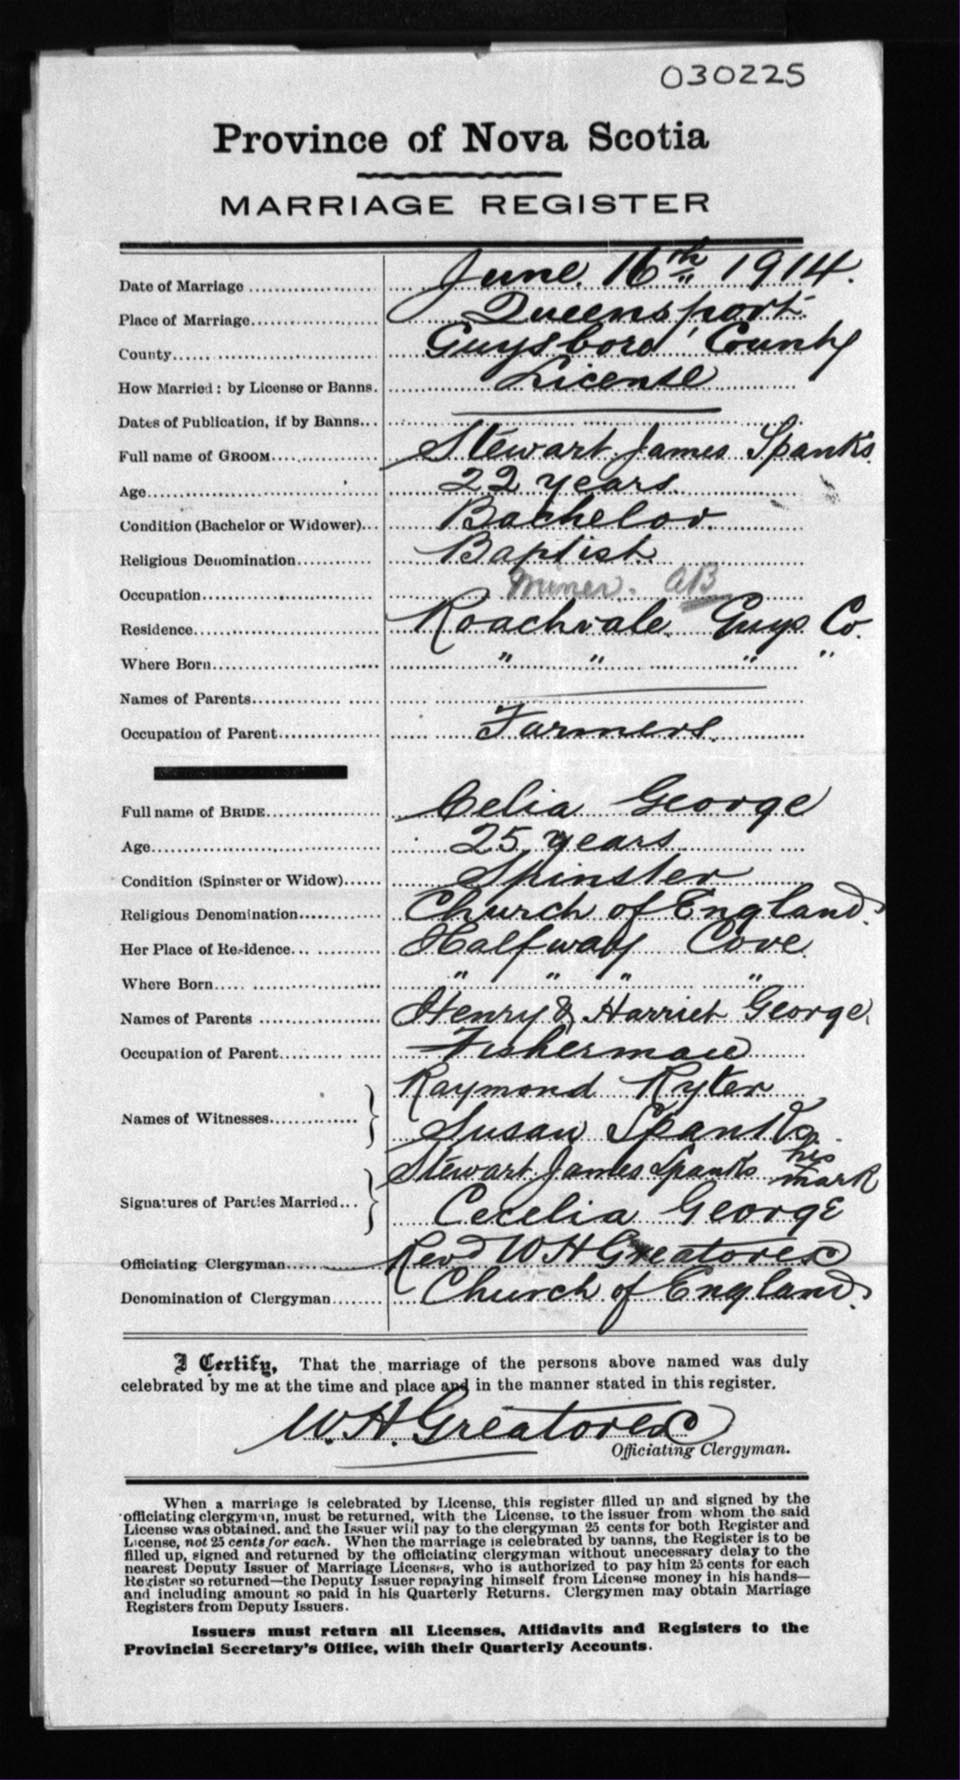 030225
Province of Nova Scotia
MARRIAGE REGISTER
Date of Marriage June 16th 1914.
Place of Marriage Queensport.
County Guysboro' County
How Married: by License or Banns. License
Dates of Publication, if by Banns
Full name of GROOM Stewart James Spanks
Age 22 years.
Condition (Bachelor or Widower) Bachelor.
Religious Denomination Baptist.
Occupation Miner. AB
Residence Roachvale Guys Co.
Where Born " " " "
Names of Parents
Occupation of Parent Farmers.
Full name of BRIDE Celia George
Age 25 years
Condition (Spinster or Widow) Spinster
Religious Denomination Church of England.
Her Place of Residence Halfway Cove.
Where Born " " " "
Names of Parents Henry & Harriet George.
Occupation of Parent Fisherman
Raymond Ryter
Names of Witnesses
Susan Spanks.
Stewart James Spanks his mark
Signatures of Parties Married
Cecelia George
Officiating Clergyman Revd W H Greatorex
Denomination of Clergyman Church of England.
I Certify, That the marriage of the persons above named was duly
celebrated by me at the time and place and in the manner stated in this register.
W. H. Greatorex
Officiating Clergyman.
When a marriage is celebrated by License, this register filled up and signed by the
officiating clergyman, must be returned, with the License, to the issuer from whom the said
License was obtained, and the Issuer will pay to the clergyman 25 cents for both Register and
License, not 25 cents for each. When the marriage is celebrated by banns, the Register is to be
filled up, signed and returned by the officiating clergyman without unecessary delay to the
nearest Deputy Issuer of Marriage Licenses, who is authorized to pay him 25 cents for each
Register so returned—the Deputy Issuer repaying himself from License money in his hands—
and including amount so paid in his Quarterly Returns. Clergymen may obtain Marriage
Registers from Deputy Issuers.
Issuers must return all Licenses, Affidavits and Registers to the
Provincial Secretary's Office, with their Quarterly Accounts.